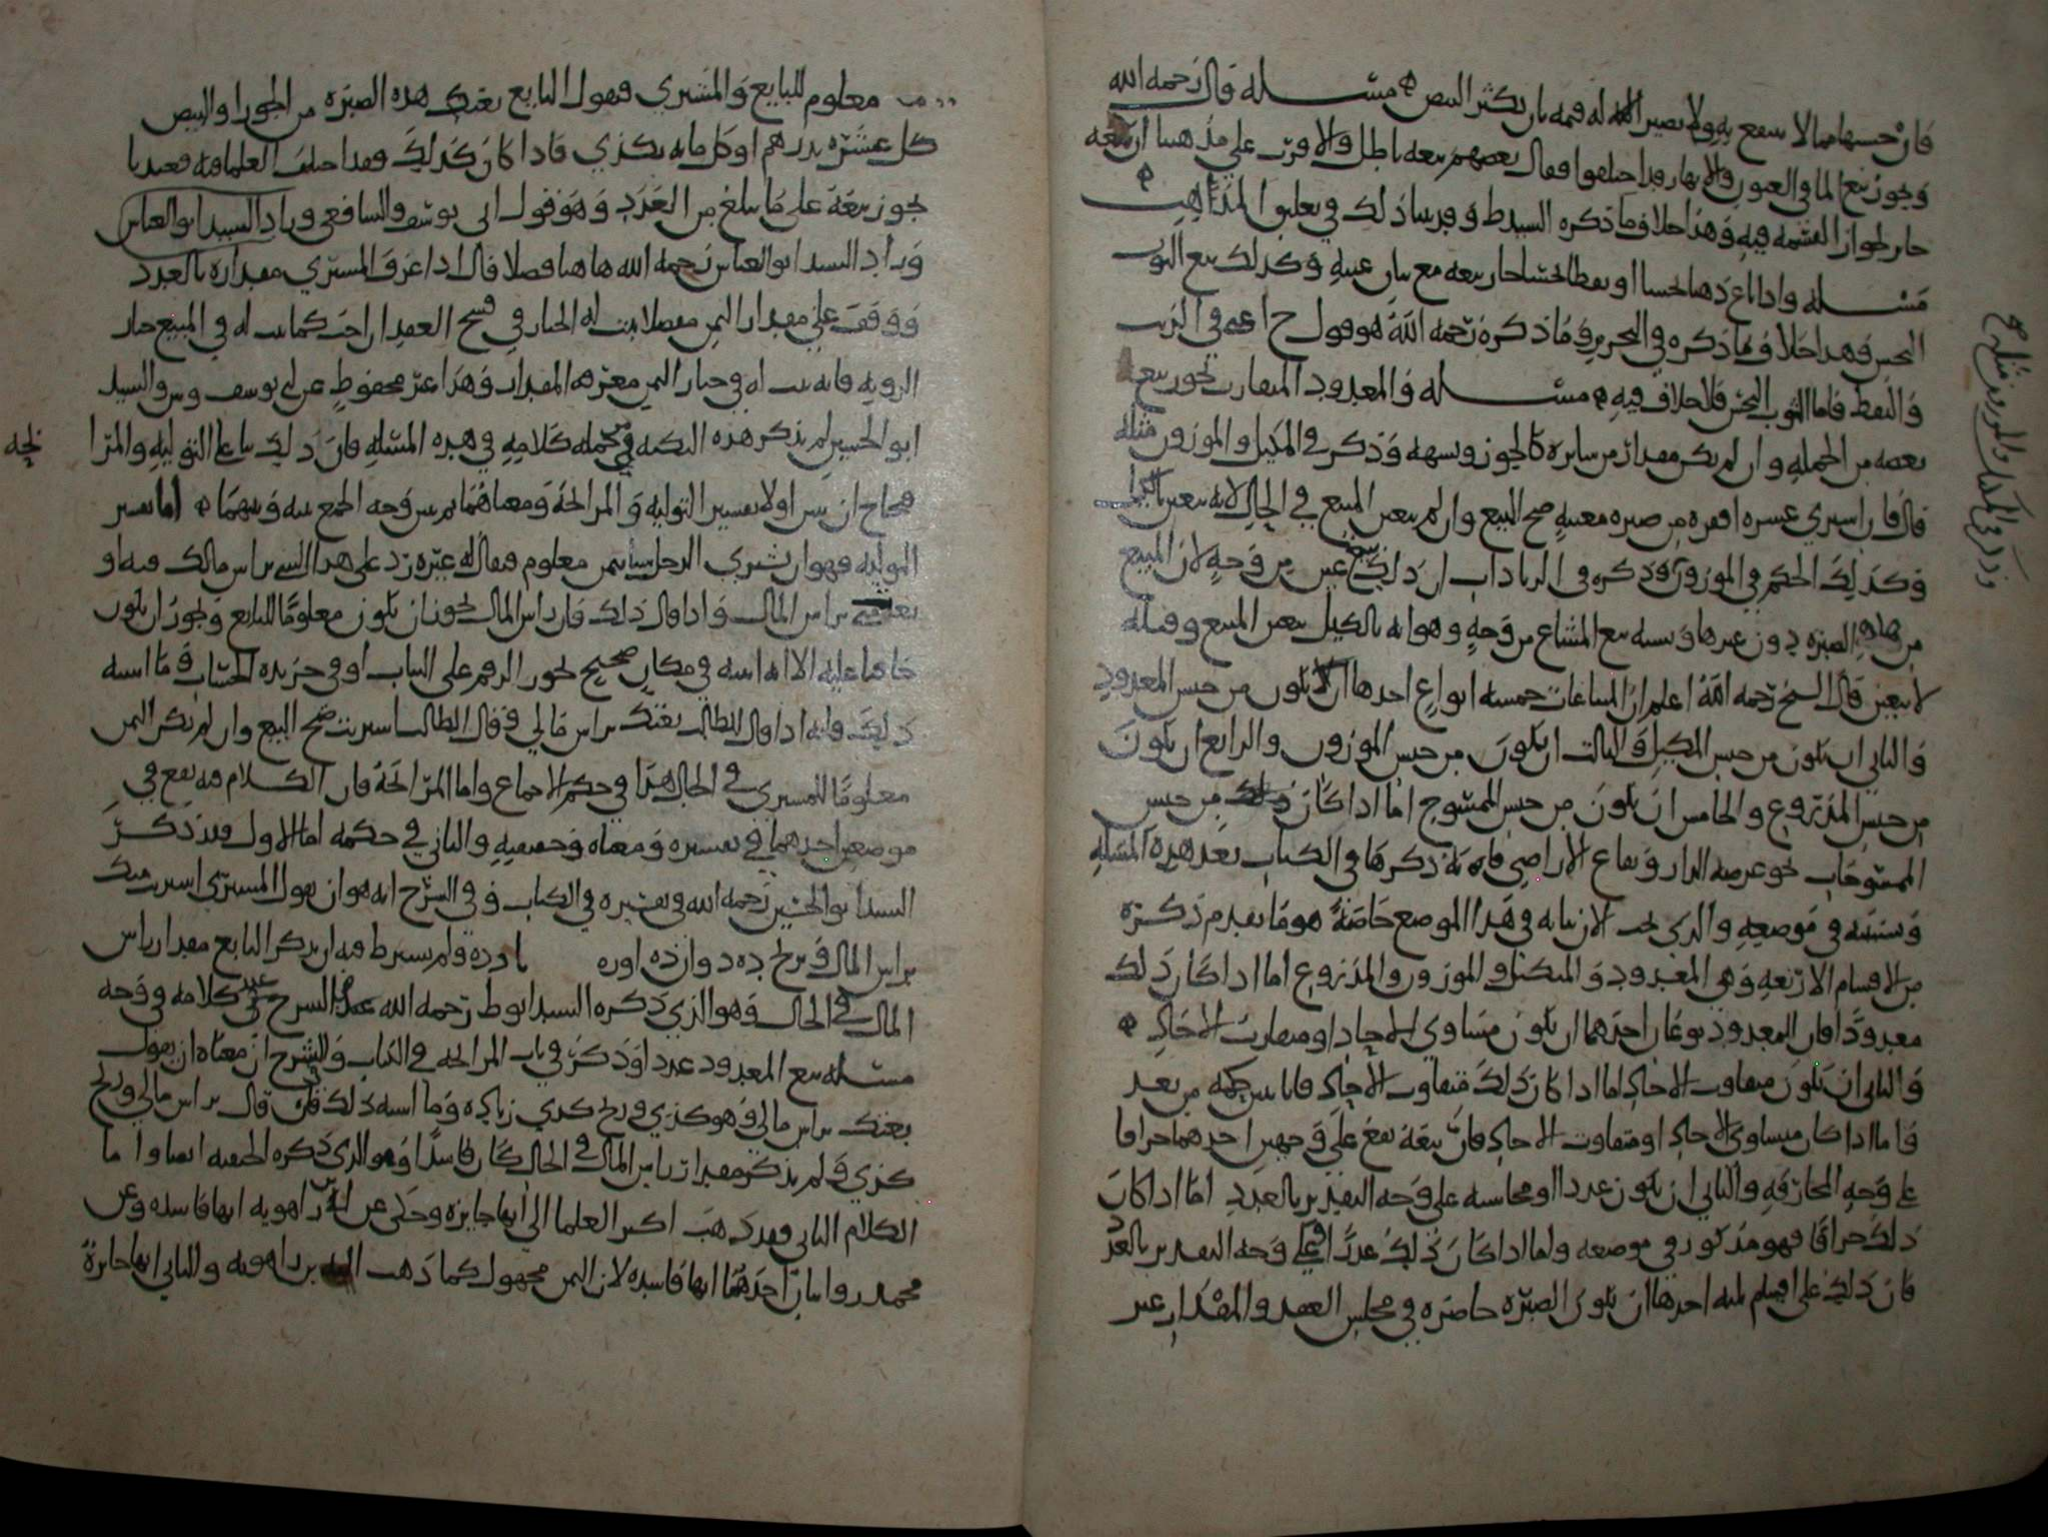 فان حبسها مما لا ينتفع به ولا يصير له قيمه بان يكثر البيض مسئله قال رحمه الله
وبجوز بيع الما في العيون والانهار وقد اختلفوا فقال بعضهم بيعه باطل والاقرب على مذهبنا ان بيعه
جايز لجواز القسمه فيه وهذا خلاف ما ذكره السيد ط وقد بينا ذلك في تعليق المذاهب
مسئله واذا باع دهنا نجسا او نفطا نجسا جاز بيعه مع بيان عيبه وكذلك بيع الثوب
النجس وهذا خلاف ما ذكره في التحرير وما ذكره رحمه الله هو قول ح في الزيت
والنفط فاما الثوب النجس فلا خلاف فيه مسئله والمعدود المتقارب يجوز بيع
بعضه من الجمله وان لم يكن مقدار من سايره كالجوز وشبهه وذكر في المكيل والموزون مثله
قال فان اشترى عشره اقفزه من صبره معينه صح البيع وان لم يتعين المبيع في الحال لانه يتعين بالكيل
وكذلك الحكم في الموزون وذكره في الزيادات ان ذلك بيع عين من وجه لان المبيع
من هذه الصبره دون غيرها ويشبه بيع المشاع من وجه وهو انه بالكيل يتعين المبيع وقبله
لا يتعين قال الشيخ رحمه الله اعلم ان المبيعات خمسه انواع احدها ان يكون من جنس المعدود
والثاني ان يكون من جنس المكيل والثالث ان يكون من جنس الموزون والرابع ان يكون
من جنس المذروع والخامس ان يكون من جنس الممسوح اما اذا كان ذلك من جنس
الممسوحات نحو عرصه الدار وبقاع الاراضي فانه ذكرها في الكتاب بعد هذه المسئله
وسنبينه في موضعه والذي يجب الان بيانه في هذا الموضع خاصة هو ما تقدم ذكره
من الاقسام الاربعه وهي المعدود والمكيل والموزون والمذروع اما اذا كان ذلك
معدودا فان المعدود نوعان احدهما ان يكون متساوي الاحاد او متقارب الاحاد
والثاني ان يكون متفاوت الاحاد اما اذا كان ذلك متفاوت الاحاد فانا نبين حكمه من بعد
واما اذا كان متساوي الاحاد او متفاوت الاحاد فان بيعه يقع على وجهين احدهما جزافا
على وجه المجازفه والثاني ان يكون عددا ومحاسبه على وجه التقدير بالعدد اما اذا كان
ذلك جزافا فهو مذكور في موضعه واما اذا كان ذلك عددا وعلى وجه التقدير بالعدد
فان ذلك على اقسام ثلثه احدها ان تكون الصبره حاضره في مجلس العقد والمقدار غير
وذكر في المكيل والموزون مثله ح
معلوم للبايع والمشتري فيقول البايع بعتك هذه الصبره من الجوز او البيض
كل عشره بدرهم او كل مايه بكذي فاذا كان كذلك فقد اختلف العلما فيه فعندنا
يجوز بيعه على ما يبلغ من العدد وهو قول ابي يوسف والشافعي وزاد السيد ابو العباس
وزاد السيد ابو العباس رحمه الله هاهنا فصلا قال اذا عرف المشتري مقداره بالعدد
ووقف على مقدار الثمن مفصلا يثبت له الخيار في فسخ العقد ان احب كما يثبت له في المبيع خيار
الرويه فانه يثبت له في خيار الثمن معرفه المقدار وهذا غير محفوظ عن ابي يوسف وش والسيد
ابو الحسين لم يذكر هذه النكته في جمله كلامه في هذه المسئله فان ذلك بنا على التوليه والمرا
بحه
فيحتاج ان نبين اولا تفسير التوليه والمرابحه ومعناهما ثم نبين وجه الجمع بينه وبينهما اما تفسير
التوليه فهو ان يشتري الرجل شيا بثمن معلوم فيقال له غيره زد على هذا الشي براس مالك فيه او
براس المال واذا قال ذلك فان راس المال يجوز ان يكون معلوما للبايع ويجوز ان يكون
خافيا عليه الا انه اثبته في مكان صحيح نحو الرقم على الثياب او في جريده الحساب وما اشبه
ذلك وانه اذا قال للطالب بعتك براس مالي وقال الطالب اشتريت صح البيع وان لم يكن الثمن
معلوما للمشتري في الحال هذا في حكم الاجماع واما المرابحه فان الكلام فيه يقع في
موضعين احدهما في تفسيره ومعناه وحقيقته والثاني في حكمه اما الاول فقد ذكر
السيد ابو الحسين رحمه الله في تفسيره في الكتاب وفي الشرح انه هو ان يقول المشتري اشتريت منك
براس المال وبربح ده دوازده او ده يازده ولم يشترط فيه ان يذكر البايع مقدار راس
المال في الحال وهو الذي ذكره السيد ابو ط رحمه الله في الشرح عند كلامه في وجه
مسئله بيع المعدود عددا وذكر في باب المرابحه في الكتاب والشرح ان معناه ان يقول
بعتك براس مالي وهو كذي وربح كذي زياده وما اشبه ذلك فان قال براس مالي وربح
كذي ولم يذكر مقدار راس المال في الحال كان فاسدا وهو الذي ذكره الحنفيه ايضا واما
الكلام الثاني فقد ذهب اكثر العلما الى انها جايزه وحكي عن ابن راهويه انها فاسده وعن
محمد روايتان احدهما انها فاسده لان الثمن مجهول كما ذهب اليه بن راهويه والثاني انها جايزة